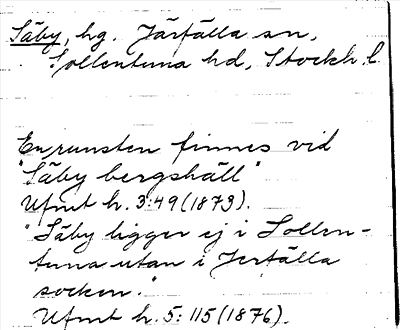 Säby, hg. Järfälla sn,
Sollentuna hd, Stockh. l.
En runsten finnes vid
"Säby bergshäll"
Ufmt h. 3:49 (1873).
"Säby ligger ej i Sollen-
tuna utan i Jerfälla
socken."
Ufmt h. 5:115 (1876).